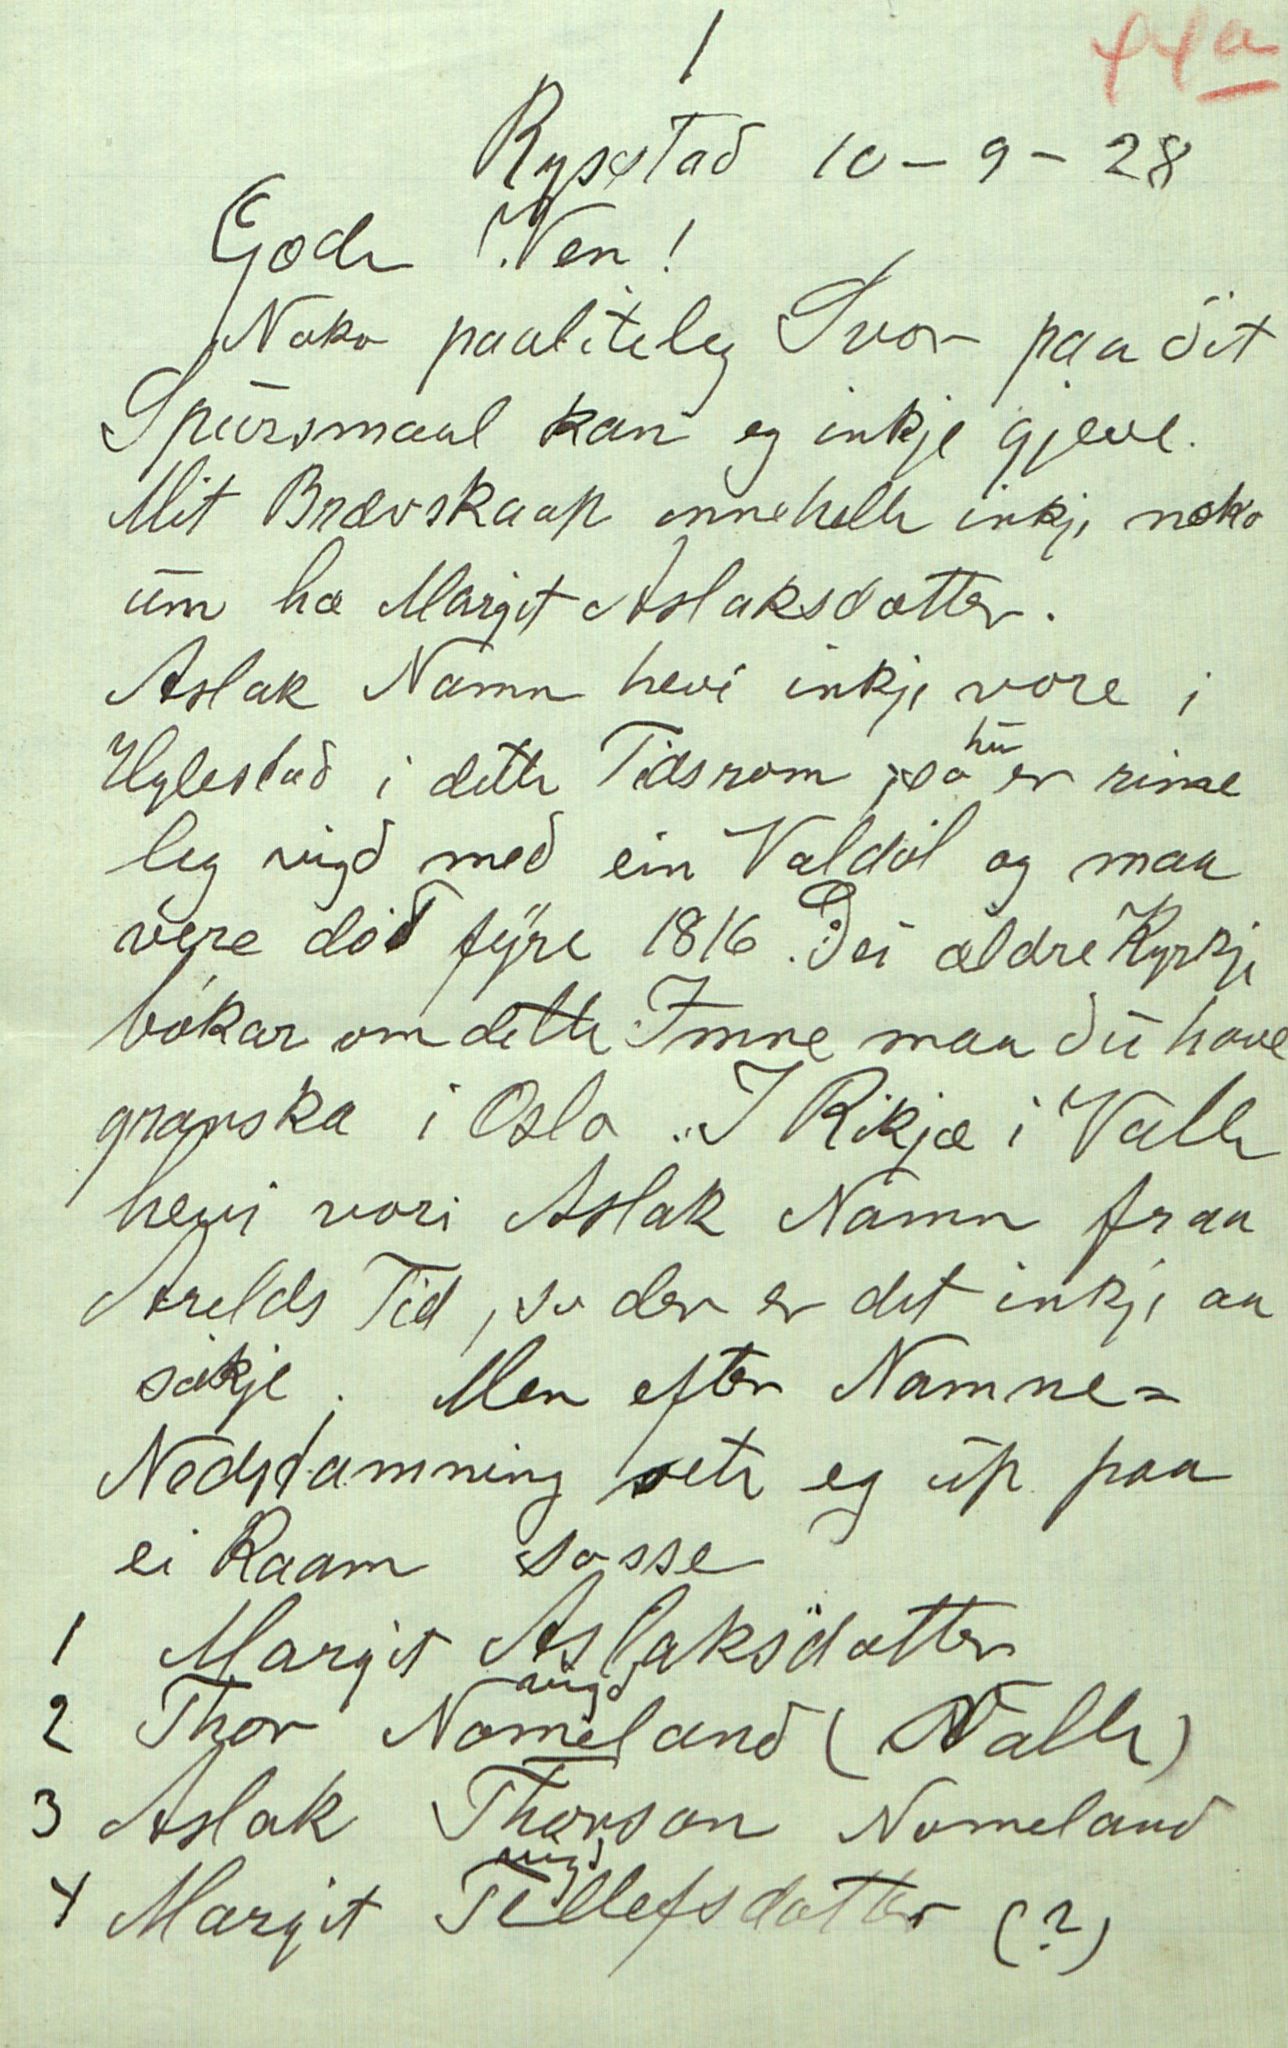 1
44a
Rysstad 10-9-28
Gode Ven!
Noko paaliteleg Svor paa dit
Spursmaal kan eg inkje gjeve.
Mit Brævskaap innehelle inkje noko
um ho Margit Aslaksdotter.
Aslak Namn hevi inkje vore i
Hylestad i dette Tidsrom, so hu er rime
leg vigd med ein Valdøl og maa
vere død fyre 1816. Dei ældre Kyrkje
bøkar om dette Imne maa du have
granska i Oslo. I Rikjæ i Valle
hevi vori Aslak Namn fraa
Arelds Tid, so der er det inkje aa
søkje. Men efter Namne=
Nedstamning sete eg up paa
ei Raam sosse
1 Margit Aslaksdotter
vigd
2 Thor Nomeland (Valle)
3 Aslak Thorson Nomeland
vigd
4 Margit Tellefsdotter (?)